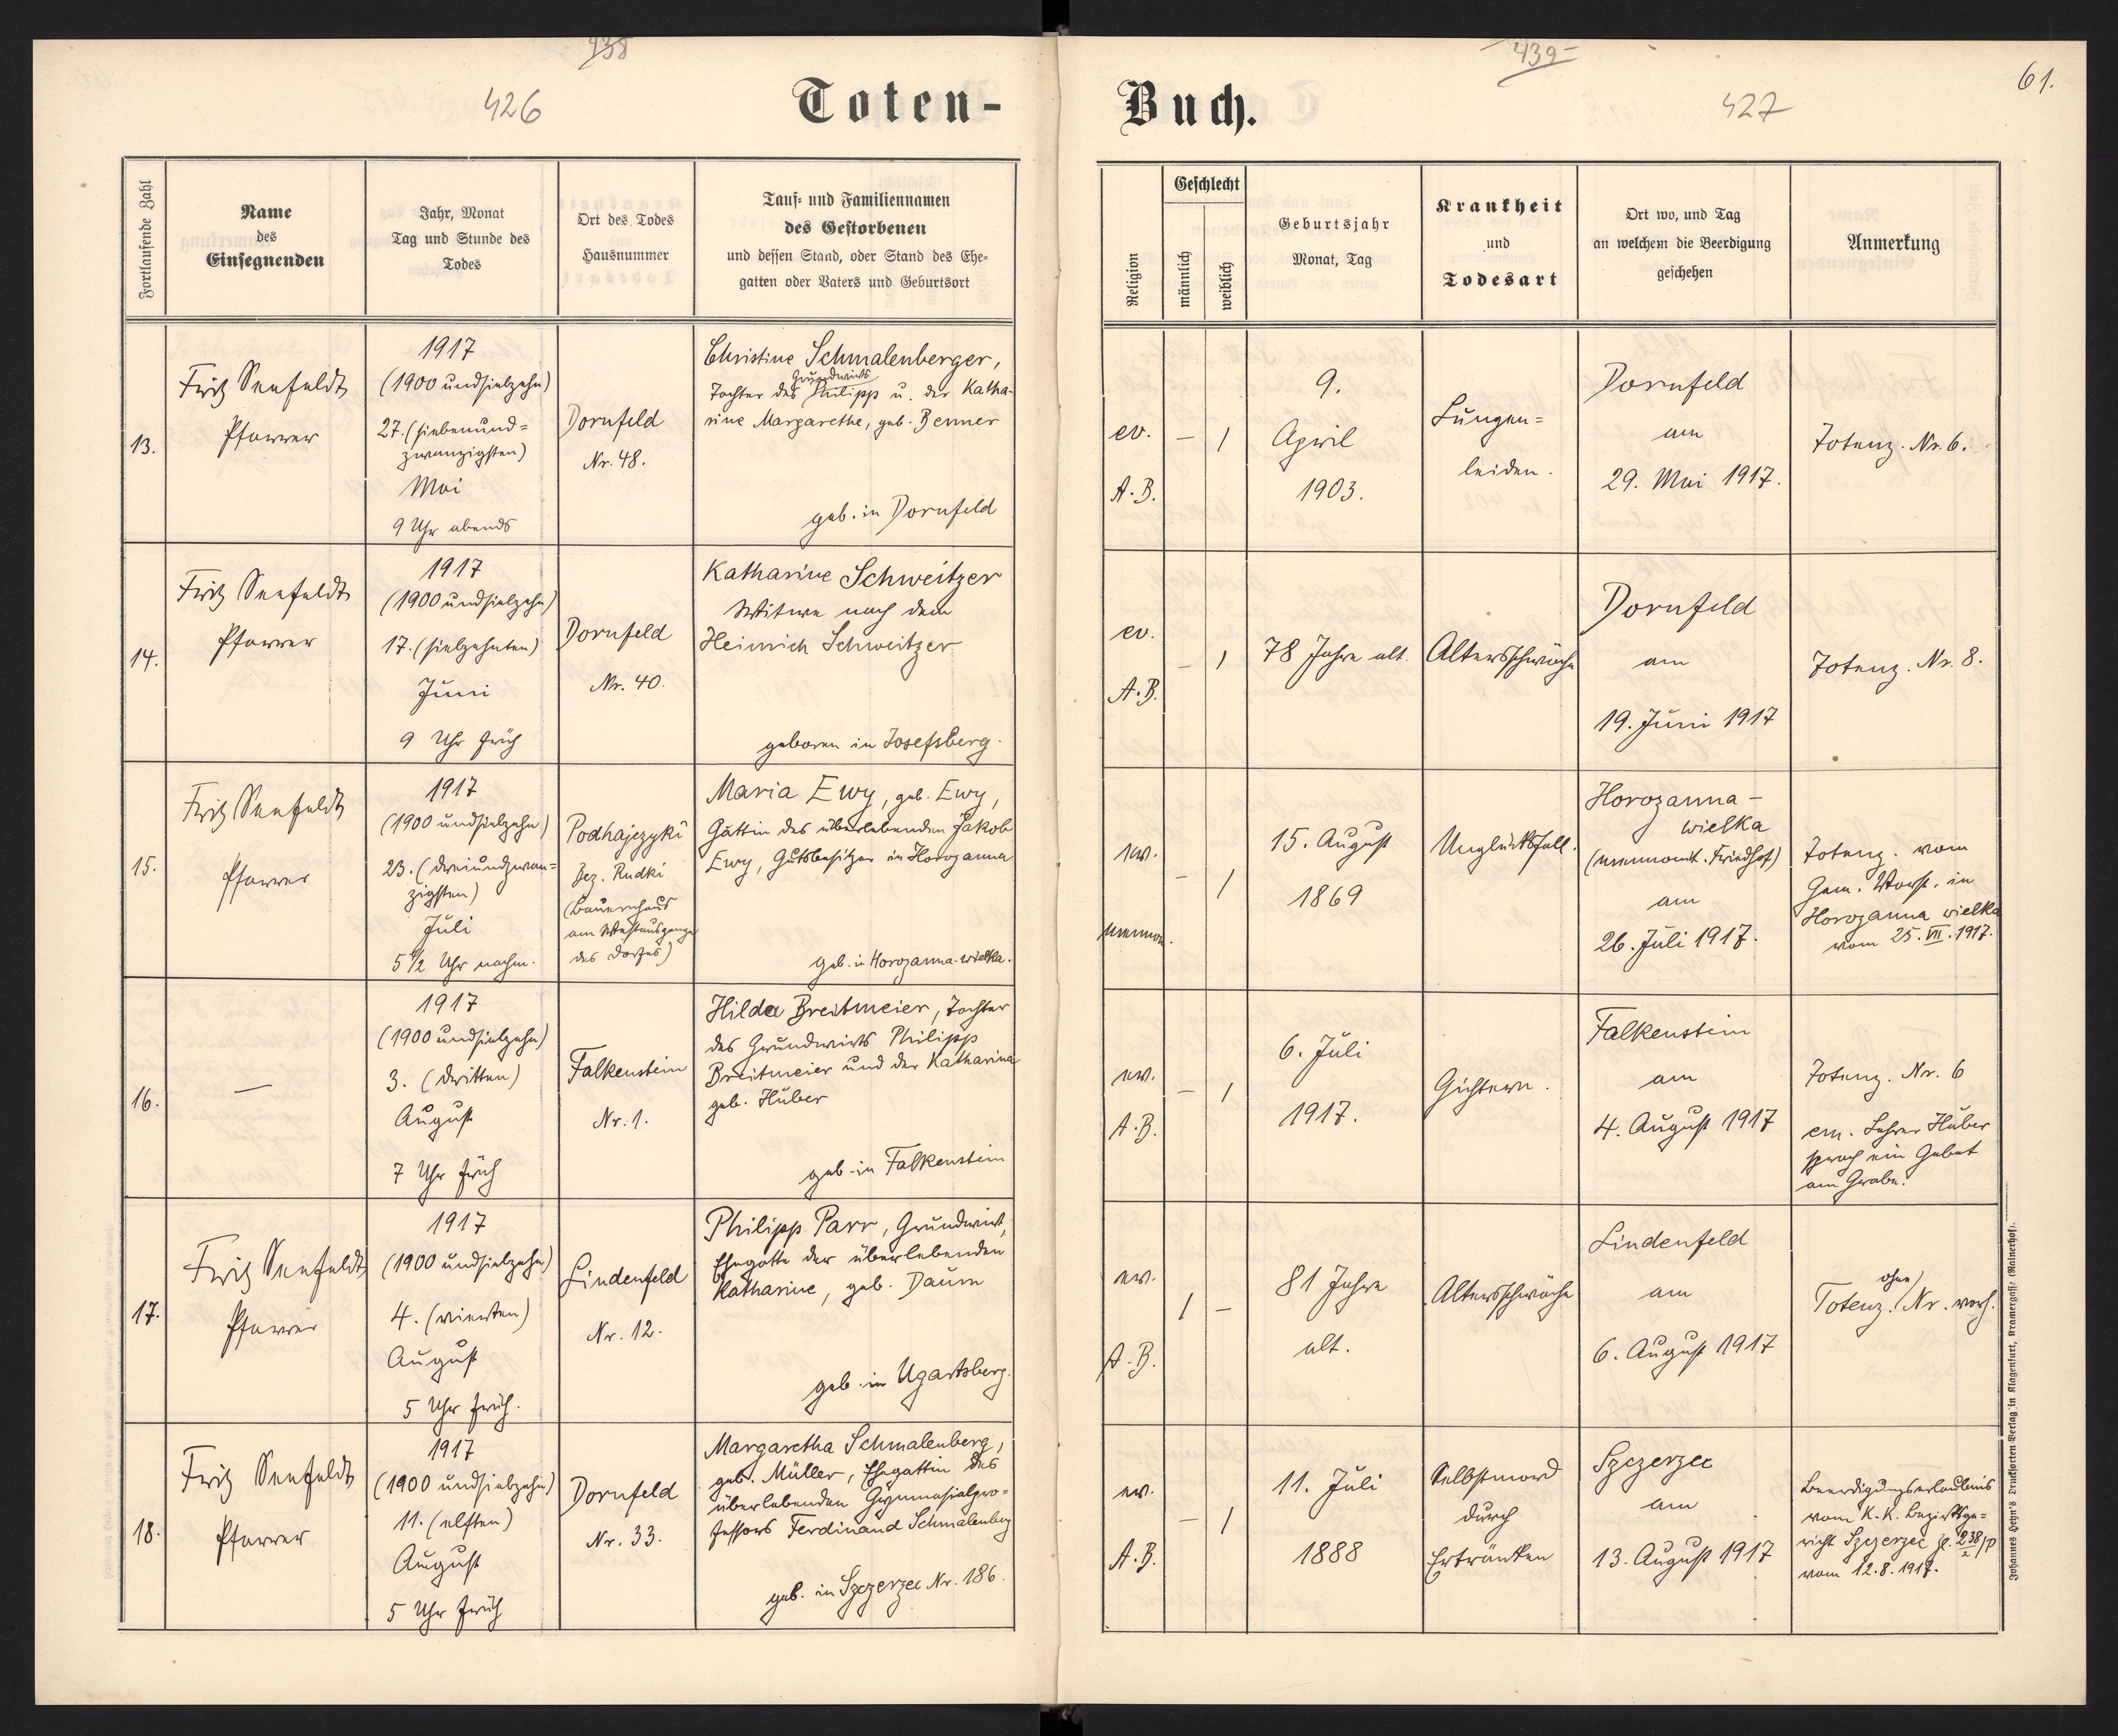 438
426
Toten-
Fortlaufende Zahl
Name
des
Einsegnenden
Jahr, Monat
Tag und Stunde des
Todes
Ort des Todes
Hausnummer
Tauf- und Familiennamen
des Gestorbenen
und dessen Stand, oder Stand des Ehe-
gatten oder Vaters und Geburtsort
13.
Fritz Seefeldt
Pfarrer
1917
(1900 undsiebzehn)
27. (siebenund-
zwanzigsten)
Mai
9 Uhr abends
Dornfeld
Nr. 48.
Christine Schmalenberger,
Grundwirts
Tochter des Philipp u. der Katha-
rine Margarethe, geb. Benner
geb. in Dornfeld
14.
Fritz Seefeldt
Pfarrer
1917
(1900 undsiebzehn)
17. (siebzehnten)
Juni
9 Uhr früh
Dornfeld
Nr. 40.
Katharine Schweitzer
Witwe nach dem
Heinrich Schweitzer
geboren in Josefsberg.
15.
Fritz Seefeldt
Pfarrer
1917
(1900 undsiebzehn)
23. (dreiundzwan-
zigsten)
Juli
5 1/2 Uhr nachm.
Podhajczyki
Bez. Rudki
(Bauernhaus
am Westausgange
des Dorfes)
Maria Ewy, geb. Ewy,
Gattin des überlebenden Jakob
Ewy, Gutsbesitzer in Horozanna
geb. in Horozanna-wielka.
16.
—
1917
(1900 undsiebzehn)
3. (dritten)
August
7 Uhr früh
Falkenstein
Nr. 1.
Hilda Breitmeier, Tochter
des Grundwirts Philipp
Breitmeier und der Katharina
geb. Huber
geb. in Falkenstein
17.
Fritz Seefeldt
Pfarrer
1917
(1900 undsiebzehn)
4. (vierten)
August
5 Uhr früh.
Lindenfeld
Nr. 12.
Philipp Parr, Grundwirt,
Ehegatte der überlebenden
Katharine, geb. Daum
geb. in Ugartsberg.
18.
Fritz Seefeldt
Pfarrer
1917
(1900 undsiebzehn)
11. (elften)
August
5 Uhr früh
Dornfeld
Nr. 33.
Margaretha Schmalenberg,
geb. Müller, Ehegattin des
überlebenden Gymnasialpro-
fessors Ferdinand Schmalenberg
geb. in Szczerzec Nr. 186.
439
427
61.
Buch.
Religion
Geschlecht
männlich
weiblich
Geburtsjahr
Monat, Tag
Krankheit
und
Todesart
Ort wo, und Tag
an welchem die Beerdigung
geschehen
Anmerkung
ev.
A.B.
– 1
9.
April
1903.
Lungen=
leiden.
Dornfeld
am
29. Mai 1917.
Totenz. Nr. 6.
ev.
A.B.
– 1
78 Jahre alt.
Altersschwäche
Dornfeld
am
19. Juni 1917
Totenz. Nr. 8.
ev.
mennon.
– 1
15. August
1869
Unglücksfall.
Horozanna –
wielka
(mennonit. Friedhof)
am
26. Juli 1917.
Totenz. vom
Gem. Vorst. in
Horozanna wielka
vom 25. VII. 1917.
ev.
A.B.
– 1
6. Juli
1917.
Gichtern.
Falkenstein
am
4. August 1917
Totenz. Nr. 6
em. Lehrer Huber
sprach ein Gebet
am Grabe.
ev.
A.B.
1 –
81 Jahre
alt.
Altersschwäche
Lindenfeld
am
6. August 1917
ohne
Totenz. Nr. vorh.
ev.
A.B.
– 1
11. Juli
1888
Selbstmord
durch
Ertränken
Szczerzec
am
13. August 1917
Beerdigungserlaubnis
vom K. K. Bezirksge=
richt Szczerzec
vom 12.8.1917.
Johannes Heyn's Drucksorten-Verlag in Klagenfurt, Kramergasse (Rainerhof).